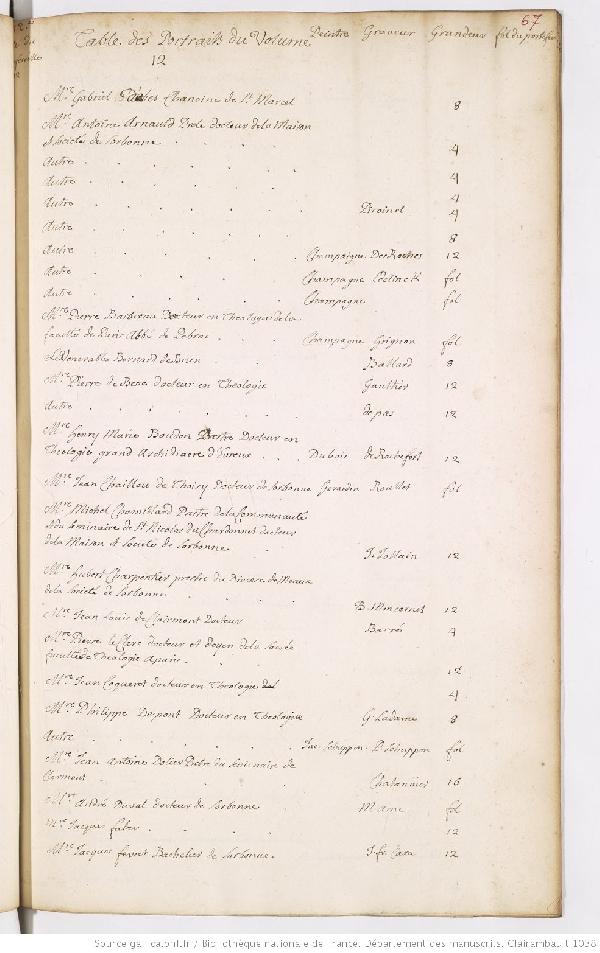 67
Table des Portraits du Volume Peintre Graveur Grandeur fol du portefeu
12
Mre Gabriel Chanoine de St Marcel 8
Mre Antoine Arnauld Docteur de la Maison
et Societé de Sorbonne 4
Autre 4
Autre 4
Autre Picinet 4
Autre 8
Autre Champaigne Des Rochers 12
Autre Champagne Edelinck fol
Autre Champagne fol
Mre Pierre Docteur en Theologie de la
faculté de Paris Abbé de Champagne Grignon fol
Le Venerable Bernard de Ballard 8
Mre Pierre de docteur en Theologie Gauthier 12
Autre de pas 12
Mre Henry Marie Boudon Prestre Docteur en
Theologie grand Archidiacre d'Evreux Dubois de Rochefort 12
Mre Jean Chaillou de Thoisy Docteur de Sorbonne Roullet fol
Mre Michel Chamillard Prestre de la Communauté
du Seminaire de St Nicolas du Chardonnet docteur
de la Maison et Societé de Sorbonne J. Lollain 12
Mre Hubert Charpentier prestre du Diocese de Meaux
de la Societé de Sorbonne B. Moncornet 12
Mre Jean Louis de Clairmont Docteur Barré 4
Mre Pierre le Clerc docteur et Doyen de la Sacrée
faculté de Theologie a paris 12
Mre Jean Coqueret docteur en Theologie 4
Mre Philippe Dupont Docteur en Theologie G. Ladame 8
Autre Jac. Schuppen P. Schuppen fol
Mre Jean Antoine Prestre du Seminaire de
Clermont 16
Mre André Duval docteur de Sorbonne fol
Mre Jacques faber 12
Mre Jacques fevret Bachelier de Sorbonne J. fr. Cars 12
Source gallica.bnf.fr / Bibliothèque nationale de France. Département des manuscrits. Clairambault 1038